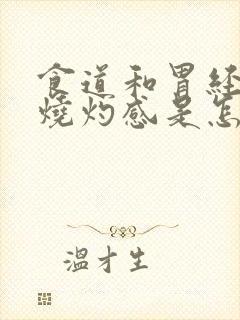 食道和胃経
燒灼感是怎
溫才生